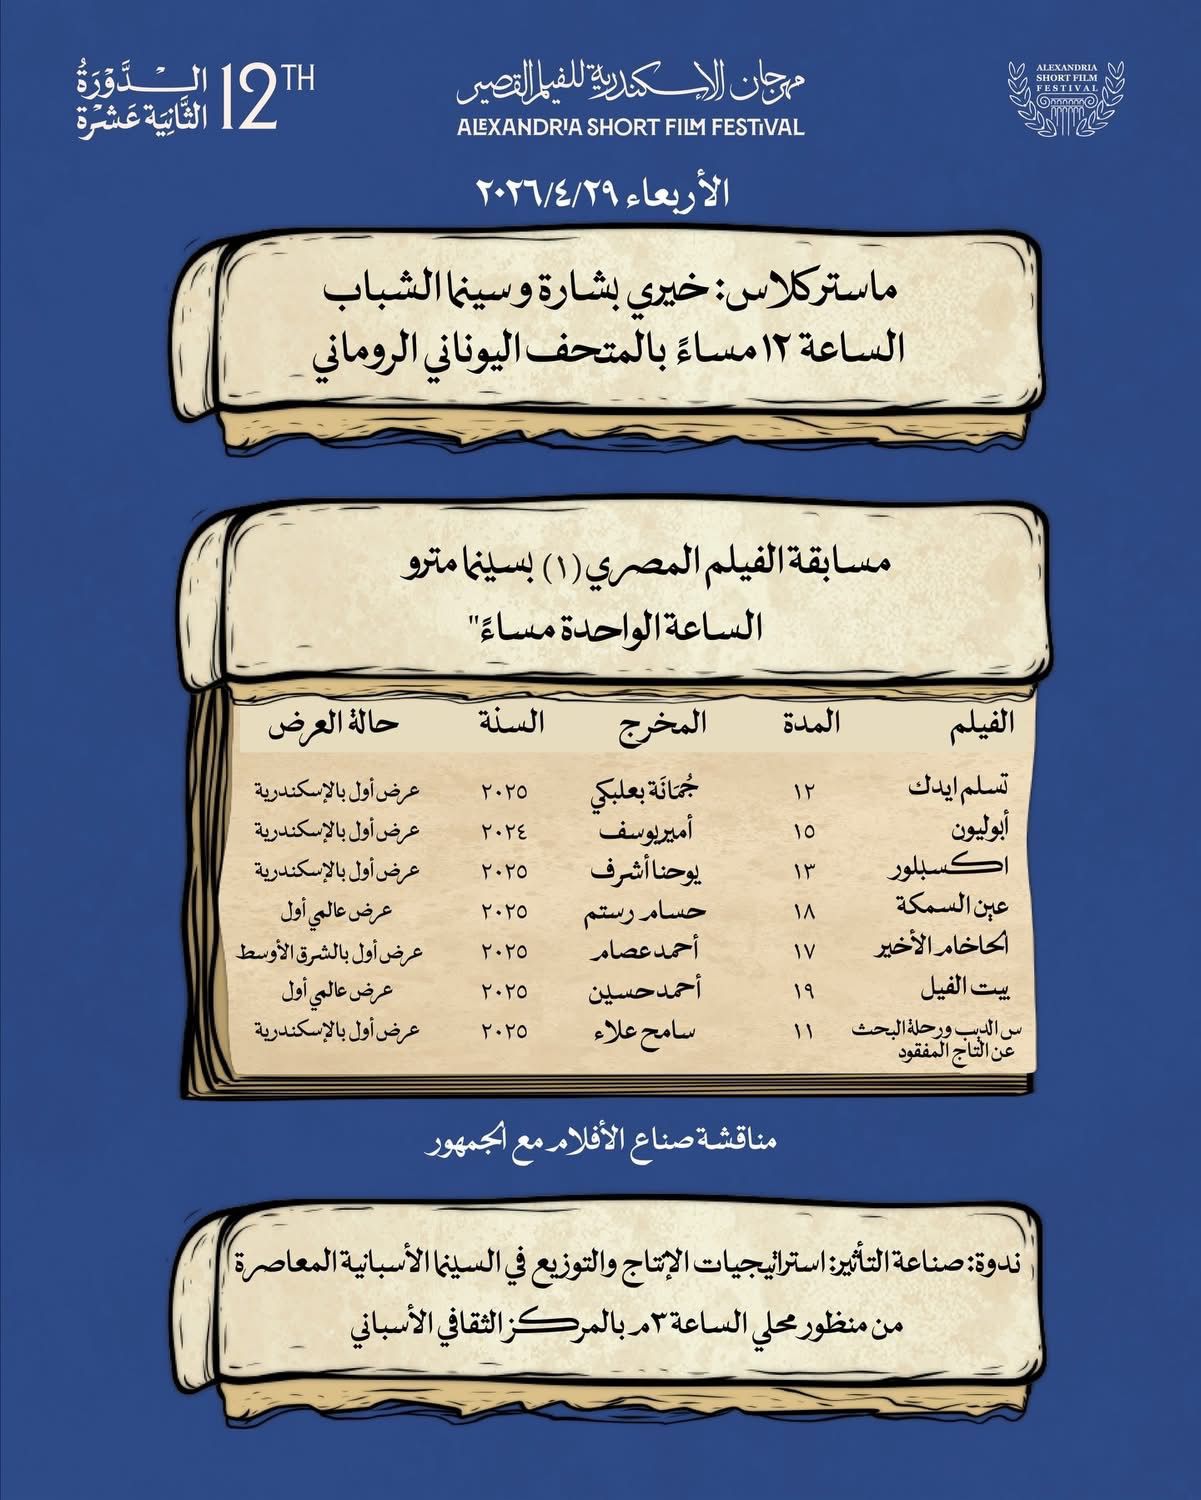 الدَّوْرَةُ
الثَّانِيَة عَشْرَة
12TH
مهرجان الإسكندرية للفيلم القصير
ALEXANDRIA SHORT FILM FESTIVAL
ALEXANDRIA
SHORT FILM
FESTIVAL
الأربعاء ٢٠٢٦/٤/٢٩
ماستركلاس: خيري بشارة وسينما الشباب
الساعة ١٢ مساءً بالمتحف اليوناني الروماني
مسابقة الفيلم المصري (١) بسينما مترو
الساعة الواحدة مساءً"
الفيلم المدة المخرج السنة حالة العرض
تسلم ايدك ١٢ جُمَانَة بعلبكي ٢٠٢٥ عرض أول بالإسكندرية
أبوليون ١٥ أمير يوسف ٢٠٢٤ عرض أول بالإسكندرية
اكسبلور ١٣ يوحنا أشرف ٢٠٢٥ عرض أول بالإسكندرية
عين السمكة ١٨ حسام رستم ٢٠٢٥ عرض عالمي أول
الحاخام الأخير ١٧ أحمد عصام ٢٠٢٥ عرض أول بالشرق الأوسط
بيت الفيل ١٩ أحمد حسين ٢٠٢٥ عرض عالمي أول
س الديب ورحلة البحث
عن التاج المفقود ١١ سامح علاء ٢٠٢٥ عرض أول بالإسكندرية
مناقشة صناع الأفلام مع الجمهور
ندوة: صناعة التأثير: استراتيجيات الإنتاج والتوزيع في السينما الأسبانية المعاصرة
من منظور محلي الساعة ٣م بالمركز الثقافي الأسباني